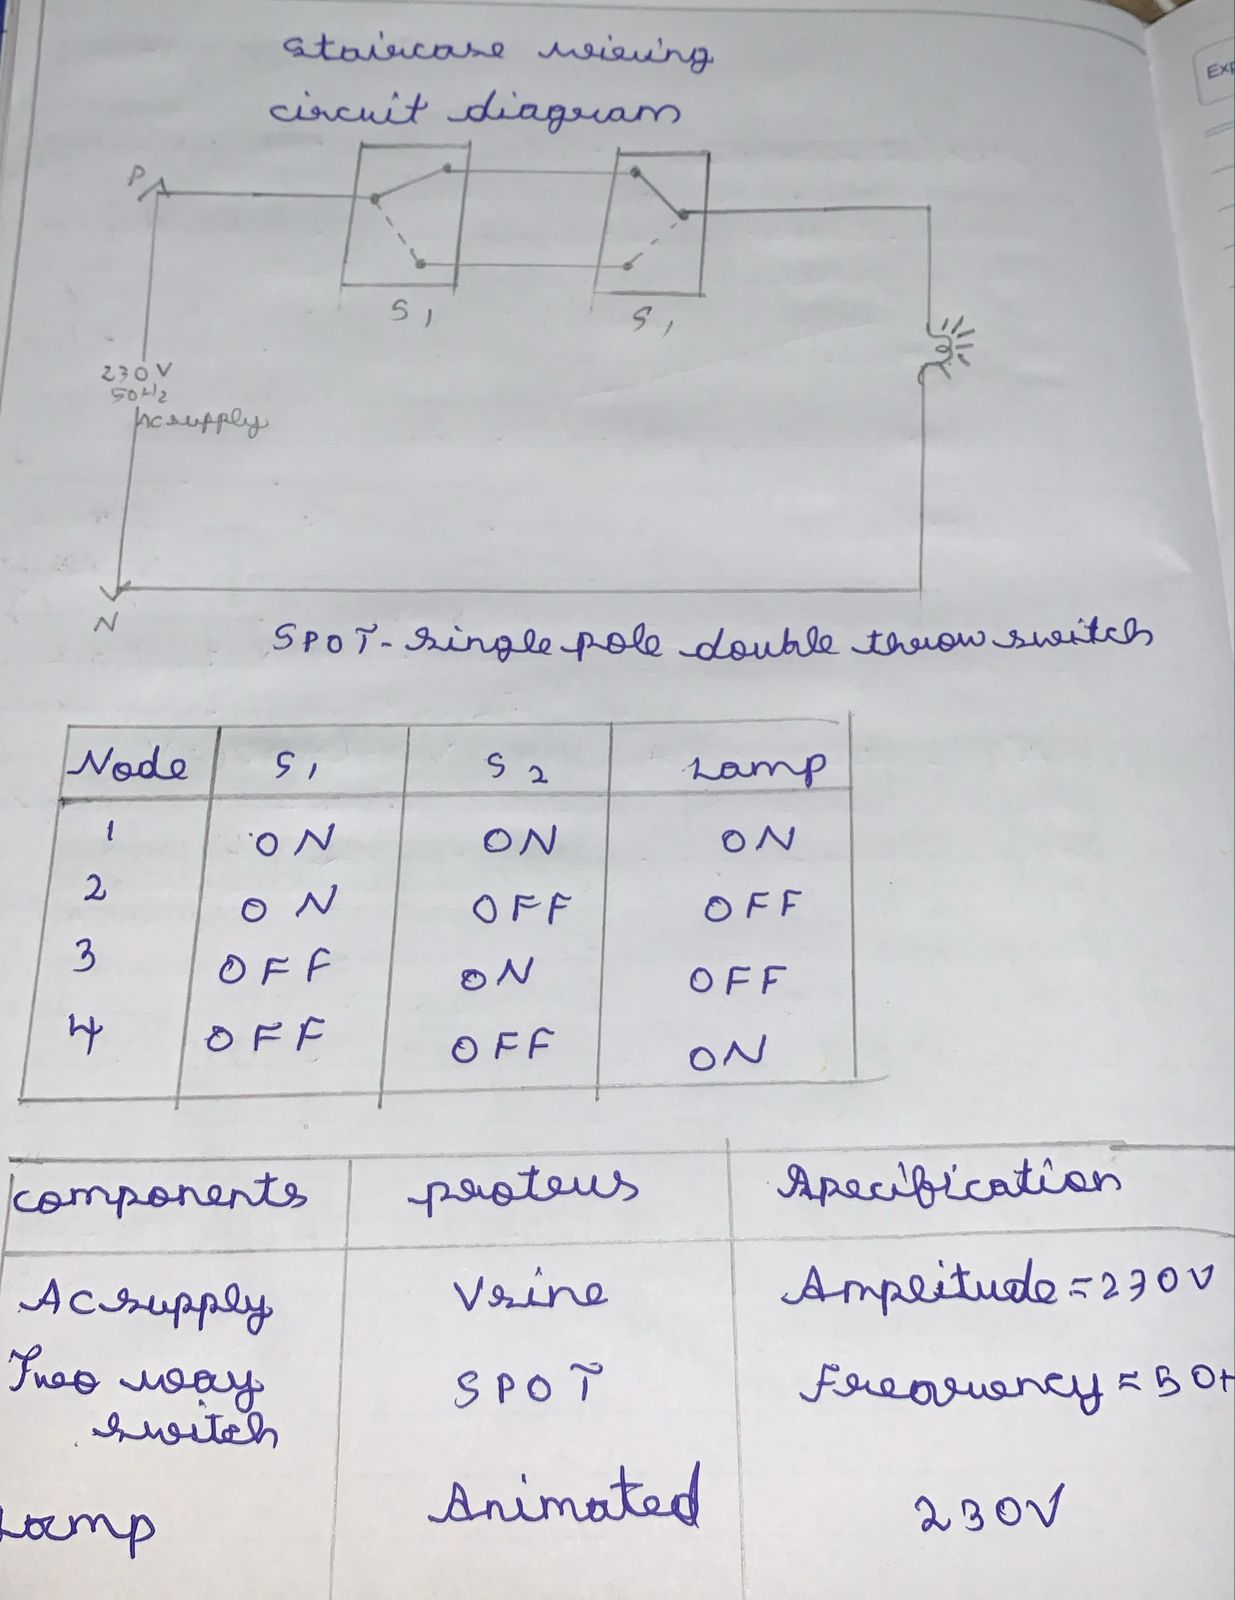 Staircase wiring
circuit diagram
Exp
P
S1
S1
230V
50Hz
Ac supply
N
SPOT - Single pole double throw switch
Node S1 S2 Lamp
1 ON ON ON
2 ON OFF OFF
3 OFF ON OFF
4 OFF OFF ON
components proteus Specification
Ac supply Vsine Amplitude = 230V
Two way SPOT Frequency = 50H
switch
Lamp Animated 230V